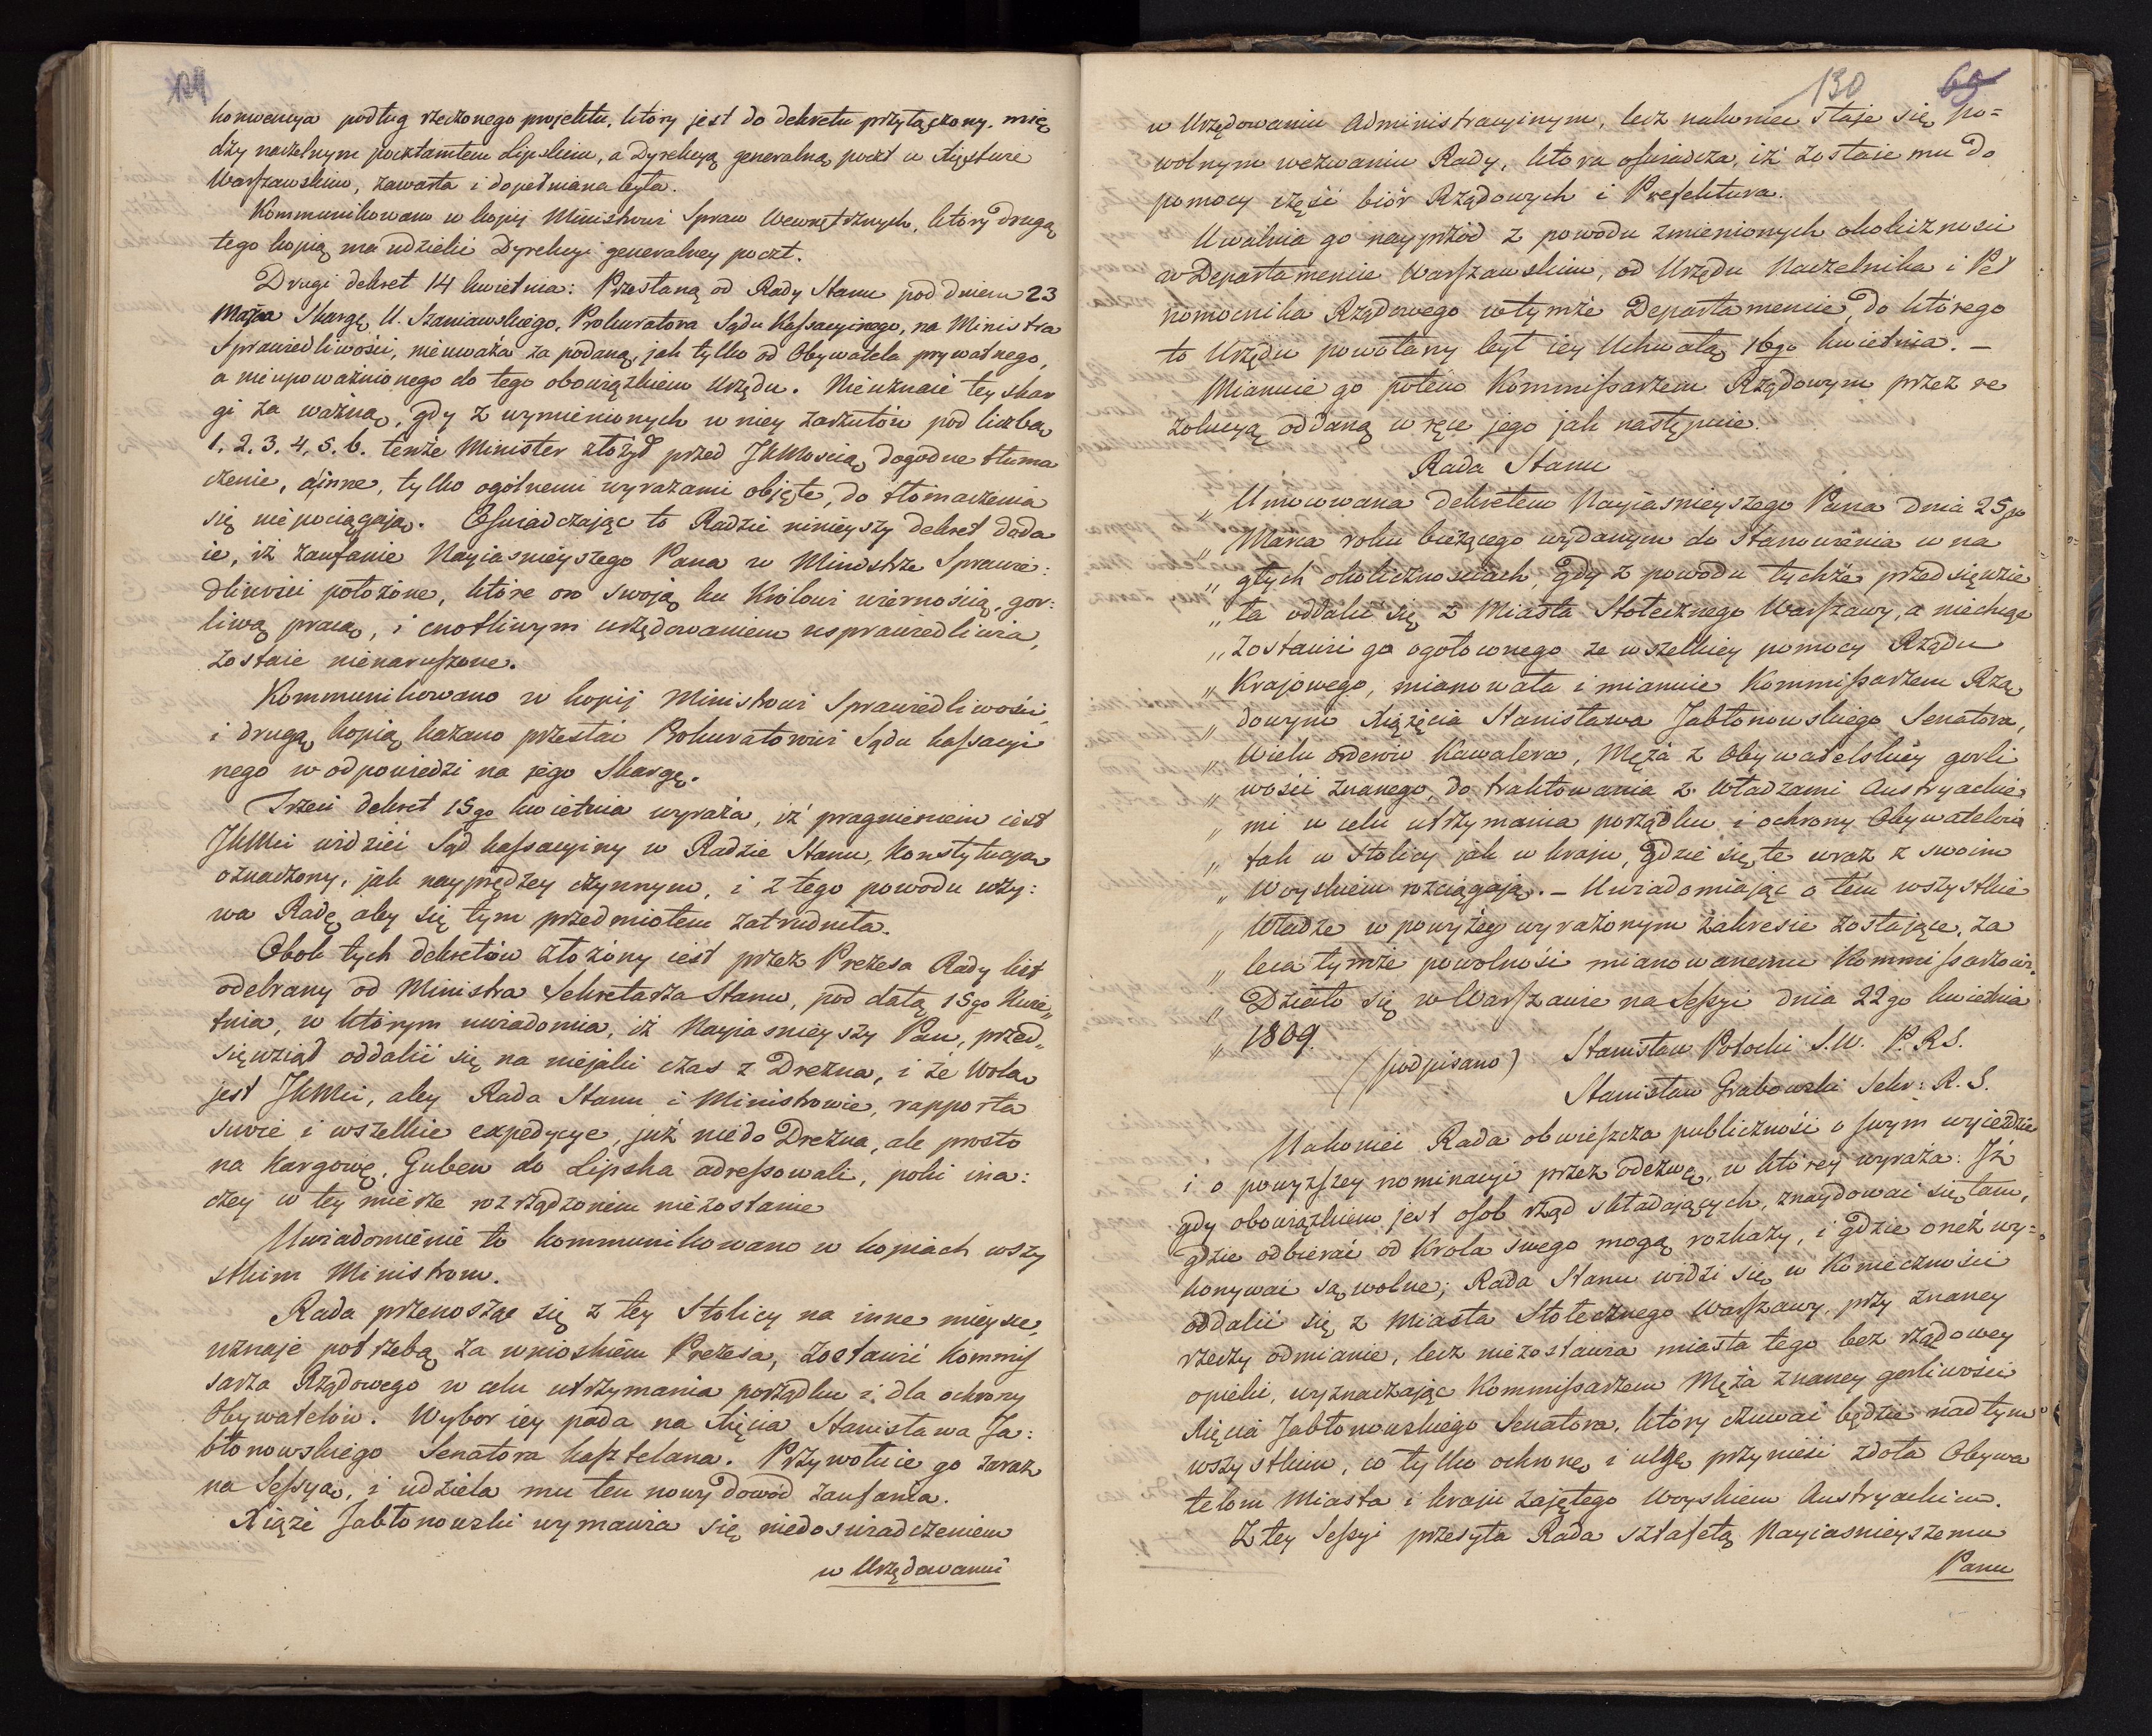 129
konwencya podług rzeczonego projektu, który jest do dekretu przyłączony, mię
dzy naczelnym pocztamtem Lipskim, a Dyrekcyą generalną poczt w Xięstwie
Warszawskim, zawarta i dopełniana była.
Kommunikowano w kopij Ministrowi Spraw Wewnętrznych, który drugą
tego kopią ma udzielić Dyrekcyi generalney poczt.
Drugi dekret 14 kwietnia: Przesłaną od Rady Stanu pod dniem 23
Marca Skargę U. Szaniawskiego, Prokuratora Sądu Kassacyinego, na Ministra
Sprawiedliwości, nieuważa za podaną, jak tylko od Obywatela prywatnego,
a nieupoważnionego do tego obowiązkiem Urzędu. Nieuznaie tey skar
gi za ważną, gdy z wymienionych w niey zarzutów pod liczbą
1. 2. 3. 4. 5. 6. tenże Minister złożył przed JKMością dogodne tłuma
czenie, a inne, tylko ogólnemi wyrazami objęte, do tłomaczenia
się nie pociągaią. Oświadczając to Radzie ninieyszy dekret doda
ie, iż zaufanie Nayiasnieyszego Pana w Ministrze Sprawie:
dliwości położone, które on swoją ku Królowi wiernością, gor:
liwą pracą, i cnotliwym urzędowaniem usprawiedliwia,
zostaie nienaruszone.
Kommunikowano w kopij Ministrowi Sprawiedliwości,
i drugą kopią kazano przesłać Prokuratorowi Sądu kassacyi
nego w odpowiedzi na jego Skargę.
Trzeci dekret 15go kwietnia wyraża, iż pragnieniem iest
JKMci widzieć Sąd kassacyiny w Radzie Stanu, Konstytucyą
oznaczony, jak nayprędzey czynnym, i z tego powodu wzy:
wa Radę aby się tym przedmiotem zatrudniła.
Obok tych dekretów złożony iest przez Prezesa Rady list
odebrany od Ministra Sekretarza Stanu, pod datą 15go Kwie„
tnia, w którym uwiadomia, iż Nayiasnieyszy Pan, przed„
sięwziął oddalić się na niejaki czas z Drezna, i że Wolą
jest JKMci, aby Rada Stanu i Ministrowie, rapporta
swoie i wszelkie expedycye, już nie do Drezna, ale prosto
na Kargowę, Guben do Lipska adressowali, poki ina:
czey w tey mierze rozrządzonem niezostanie
Uwiadomienie to kommunikowano w kopiach wszy
stkim Ministrom.
Rada przenosząc się z tey Stolicy na inne mieysce,
uznaje potrzebą za wnioskiem Prezesa, zostawić Kommis
sarza Rządowego w celu utrzymania porządku i dla ochrony
Obywatelów. Wybor iey pada na Xięcia Stanisława Ja:
błonowskiego Senatora kasztelana. Przywołuie go zaraz
na Sessyą, i udziela mu ten nowy dowod zaufania.
Xiąże Jabłonowski wymawia się niedoswiadczeniem
w Urzędowaniu
130 65
w Urzędowaniu Administracyinym, lecz nakoniec staje się po=
wolnym wezwaniu Rady, która oświadcza, iż zostaie mu do
pomocy część biór Rządowych i Prefektura.
Uwalnia go nayprzód z powodu zmienionych okoliczności
w Departamencie Warszawskim, od Urzędu Naczelnika i Peł
nomocnika Rządowego w tymże Departamencie, do którego
to Urzędu powołany był iey Uchwałą 16go kwietnia. —
Mianuie go potem Kommissarzem Rządowym przez re
zolucyą oddaną w ręce jego jak następuie.
Rada Stanu
„ Umocowana dekretem Nayiasnieyszego Pana dnia 25go
„ Marca roku bieżącego wydanym do Stanowienia w na
„ głych okolicznościach, gdy z powodu tychże przedsięwzie
„ ła oddalić się z Miasta Stołecznego Warszawy, a niechcąc
„ zostawić go ogołoconego ze wszelkiey pomocy Rządu
„ Krajowego, mianowała i mianuie Kommissarzem Rzą
„ dowym Xiążęcia Stanisława Jabłonowskiego Senatora,
„ Wielu orderów Kawalera, Męża z Obywatelskiéy gorli
„ wości znanego, do traktowania z Władzami Austryackie
„ mi w celu utrzymania porządku i ochrony Obywatelów
„ tak w Stolicy jak w kraju, gdzie się te wraz z swoim
„ Woyskiem rozciągaią. — Uwiadomiając o tem wszystkie
„ Władze w powyżey wyrażonym zakresie zostające, za
„ leca tymże powolność mianowanemu Kommissarzowi.
„ Działo się w Warszawie na Sessyi dnia 22go kwietnia
„ 1809.
(podpisano) Stanisław Potocki S.W. P.R.S.
Stanisław Grabowski Sekr: R. S.
Nakoniec Rada obwieszcza publiczności o swym wyieździe
i o powyższey nominacyi przez odezwę, w którey wyraża: Iż
gdy obowiązkiem jest osob rząd składających, znaydować się tam,
gdzie odbierać od Krola swego mogą rozkazy, i gdzie oneż wy=
konywać są wolne; Rada Stanu widzi się w Konieczności
oddalić się z Miasta Stołecznego Warszawy, przy znaney
rzeczy odmianie, lecz niezostawia miasta tego bez rządowey
opieki, wyznaczając Kommissarzem Męża znaney gorliwości
Xięcia Jabłonowskiego Senatora, który czuwać będzie nad tym
wszystkim, co tylko ochronę i ulgę przynieść zdoła Obywa
telom Miasta i kraju zajętego Woyskiem Austryackim.
Z tey Sessyi przesyła Rada sztafetą Nayiasnieyszemu
Panu